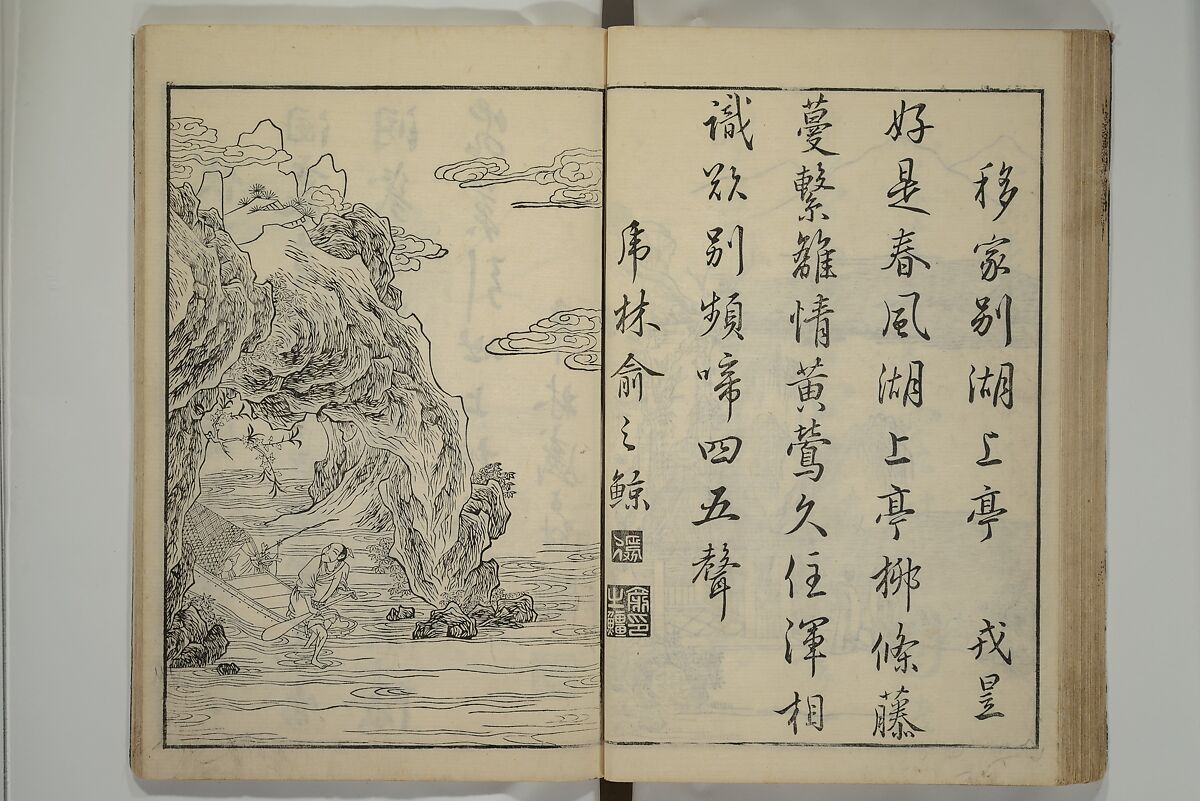 移家別湖上亭 戎昱
好是春風湖上亭柳條藤
蔓繫離情黃鶯久住渾相
識欲別頻啼四五聲
虎林俞之鯨